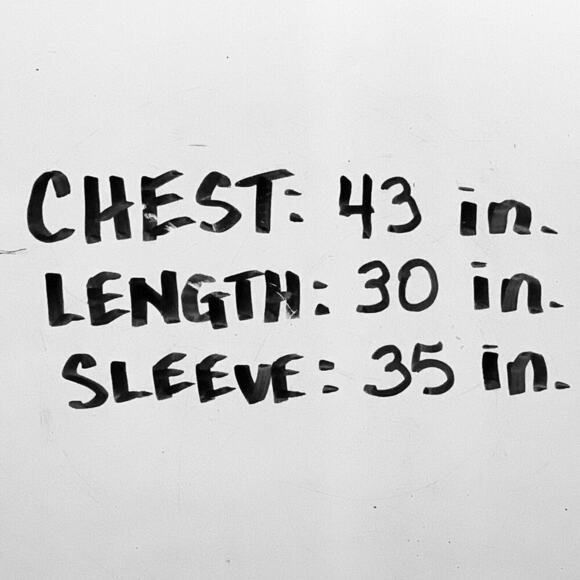 CHEST: 43 in.
LENGTH: 30 in.
SLEEVE: 35 in.